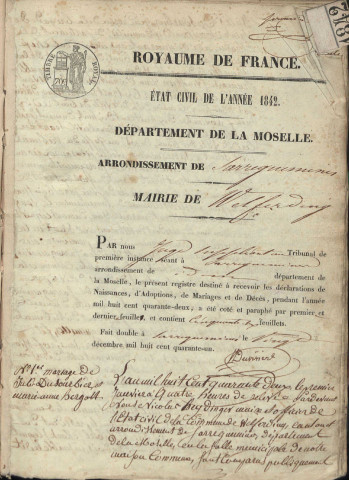 TIMBRE ROYAL
ROYAUME DE FRANCE.
ÉTAT CIVIL DE L'ANNÉE 1842.
DÉPARTEMENT DE LA MOSELLE.
ARRONDISSEMENT DE Sarreguemines
MAIRIE DE Welferding
PAR nous Juge Tribunal de
première instance séant à Sarreguemines
arrondissement de département de
la Moselle, le présent registre destiné à recevoir les déclarations de
Naissances, d'Adoptions, de Mariages et de Décès, pendant l'année
mil huit cent quarante-deux; a été coté et paraphé par premier et
dernier feuillet, et contient Cinquante feuillets.
Fait double à Sarreguemines le Vingt
décembre mil huit cent quarante-un.
N.º 1er mariage de
et
marie anne Bergott
L'an mil huit Cent quarante Deux le premier
Janvier à Quatre heures de pardevant
nous Nicolas maire officier de
l'Etat civil de la Commune de Welferding, canton et
arrondissement de Sarreguemines, département
de la Moselle, en la salle municipale de notre
maison Commune, sont Comparus publiquement